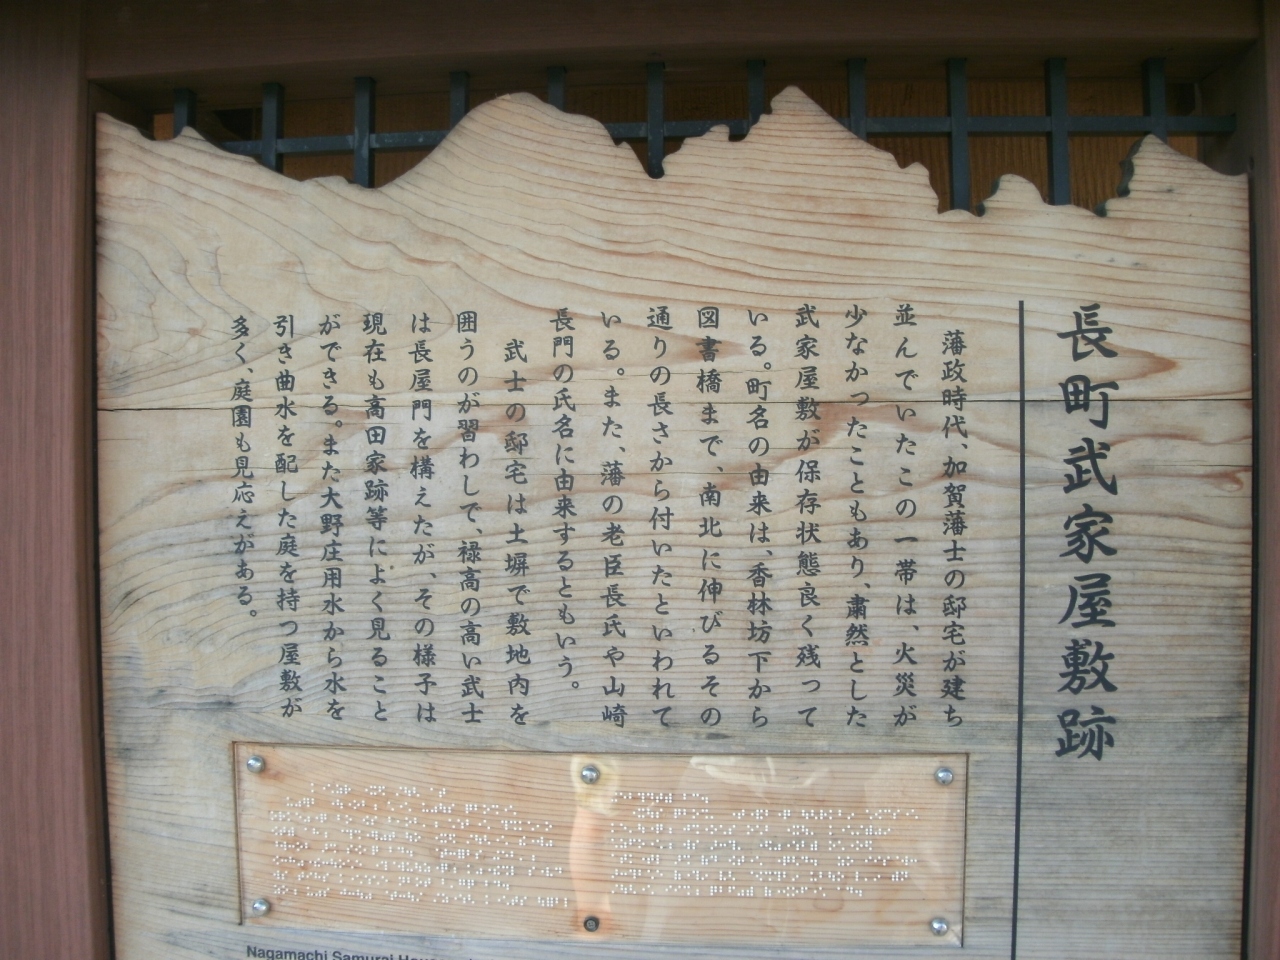 長町武家屋敷跡
藩政時代、加賀藩士の邸宅が建ち
並んでいたこの一帯は、火災が
少なかったこともあり、粛然とした
武家屋敷が保存状態良く残って
いる。町名の由来は、香林坊下から
図書橋まで、南北に伸びるその
通りの長さから付いたといわれて
いる。また、藩の老臣長氏や山崎
長門の氏名に由来するともいう。
武士の邸宅は土塀で敷地内を
囲うのが習わしで、禄高の高い武士
は長屋門を構えたが、その様子は
現在も高田家跡等によく見ること
ができる。また大野庄用水から水を
引き曲水を配した庭を持つ屋敷が
多く、庭園も見応えがある。
Nagamachi Samurai